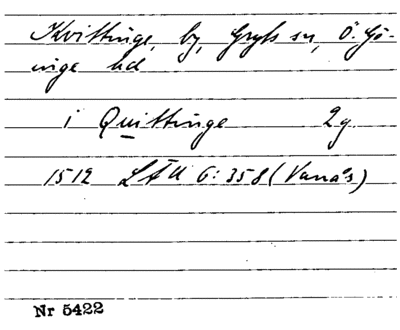 Kvittinge, by, Gryts sn, Ö. Gö-
inge hd
i Quittinge 2 g.
1512 LÄU 6:358 (Vanås)
Nr 5422